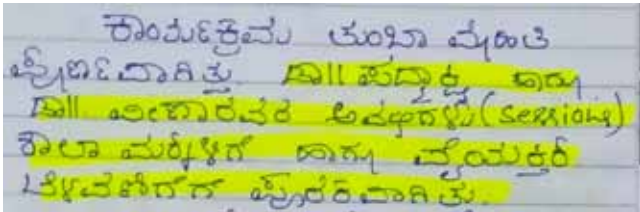 ಕಾರ್ಯಕ್ರಮ ತುಂಬಾ ಮಾಹಿತಿ
ಪೂರ್ಣವಾಗಿತ್ತು. ಡಾ|| ಪದ್ಮಾಕ್ಷಿ ಹಾಗೂ
ಡಾ|| ಅವಧಿಗಳು (sessions)
ಶಾಲಾ ಮಕ್ಕಳಿಗೆ ಹಾಗೂ ವೈಯಕ್ತಿಕ
ಬೆಳವಣಿಗೆಗೆ ಪೂರಕವಾಗಿತ್ತು.